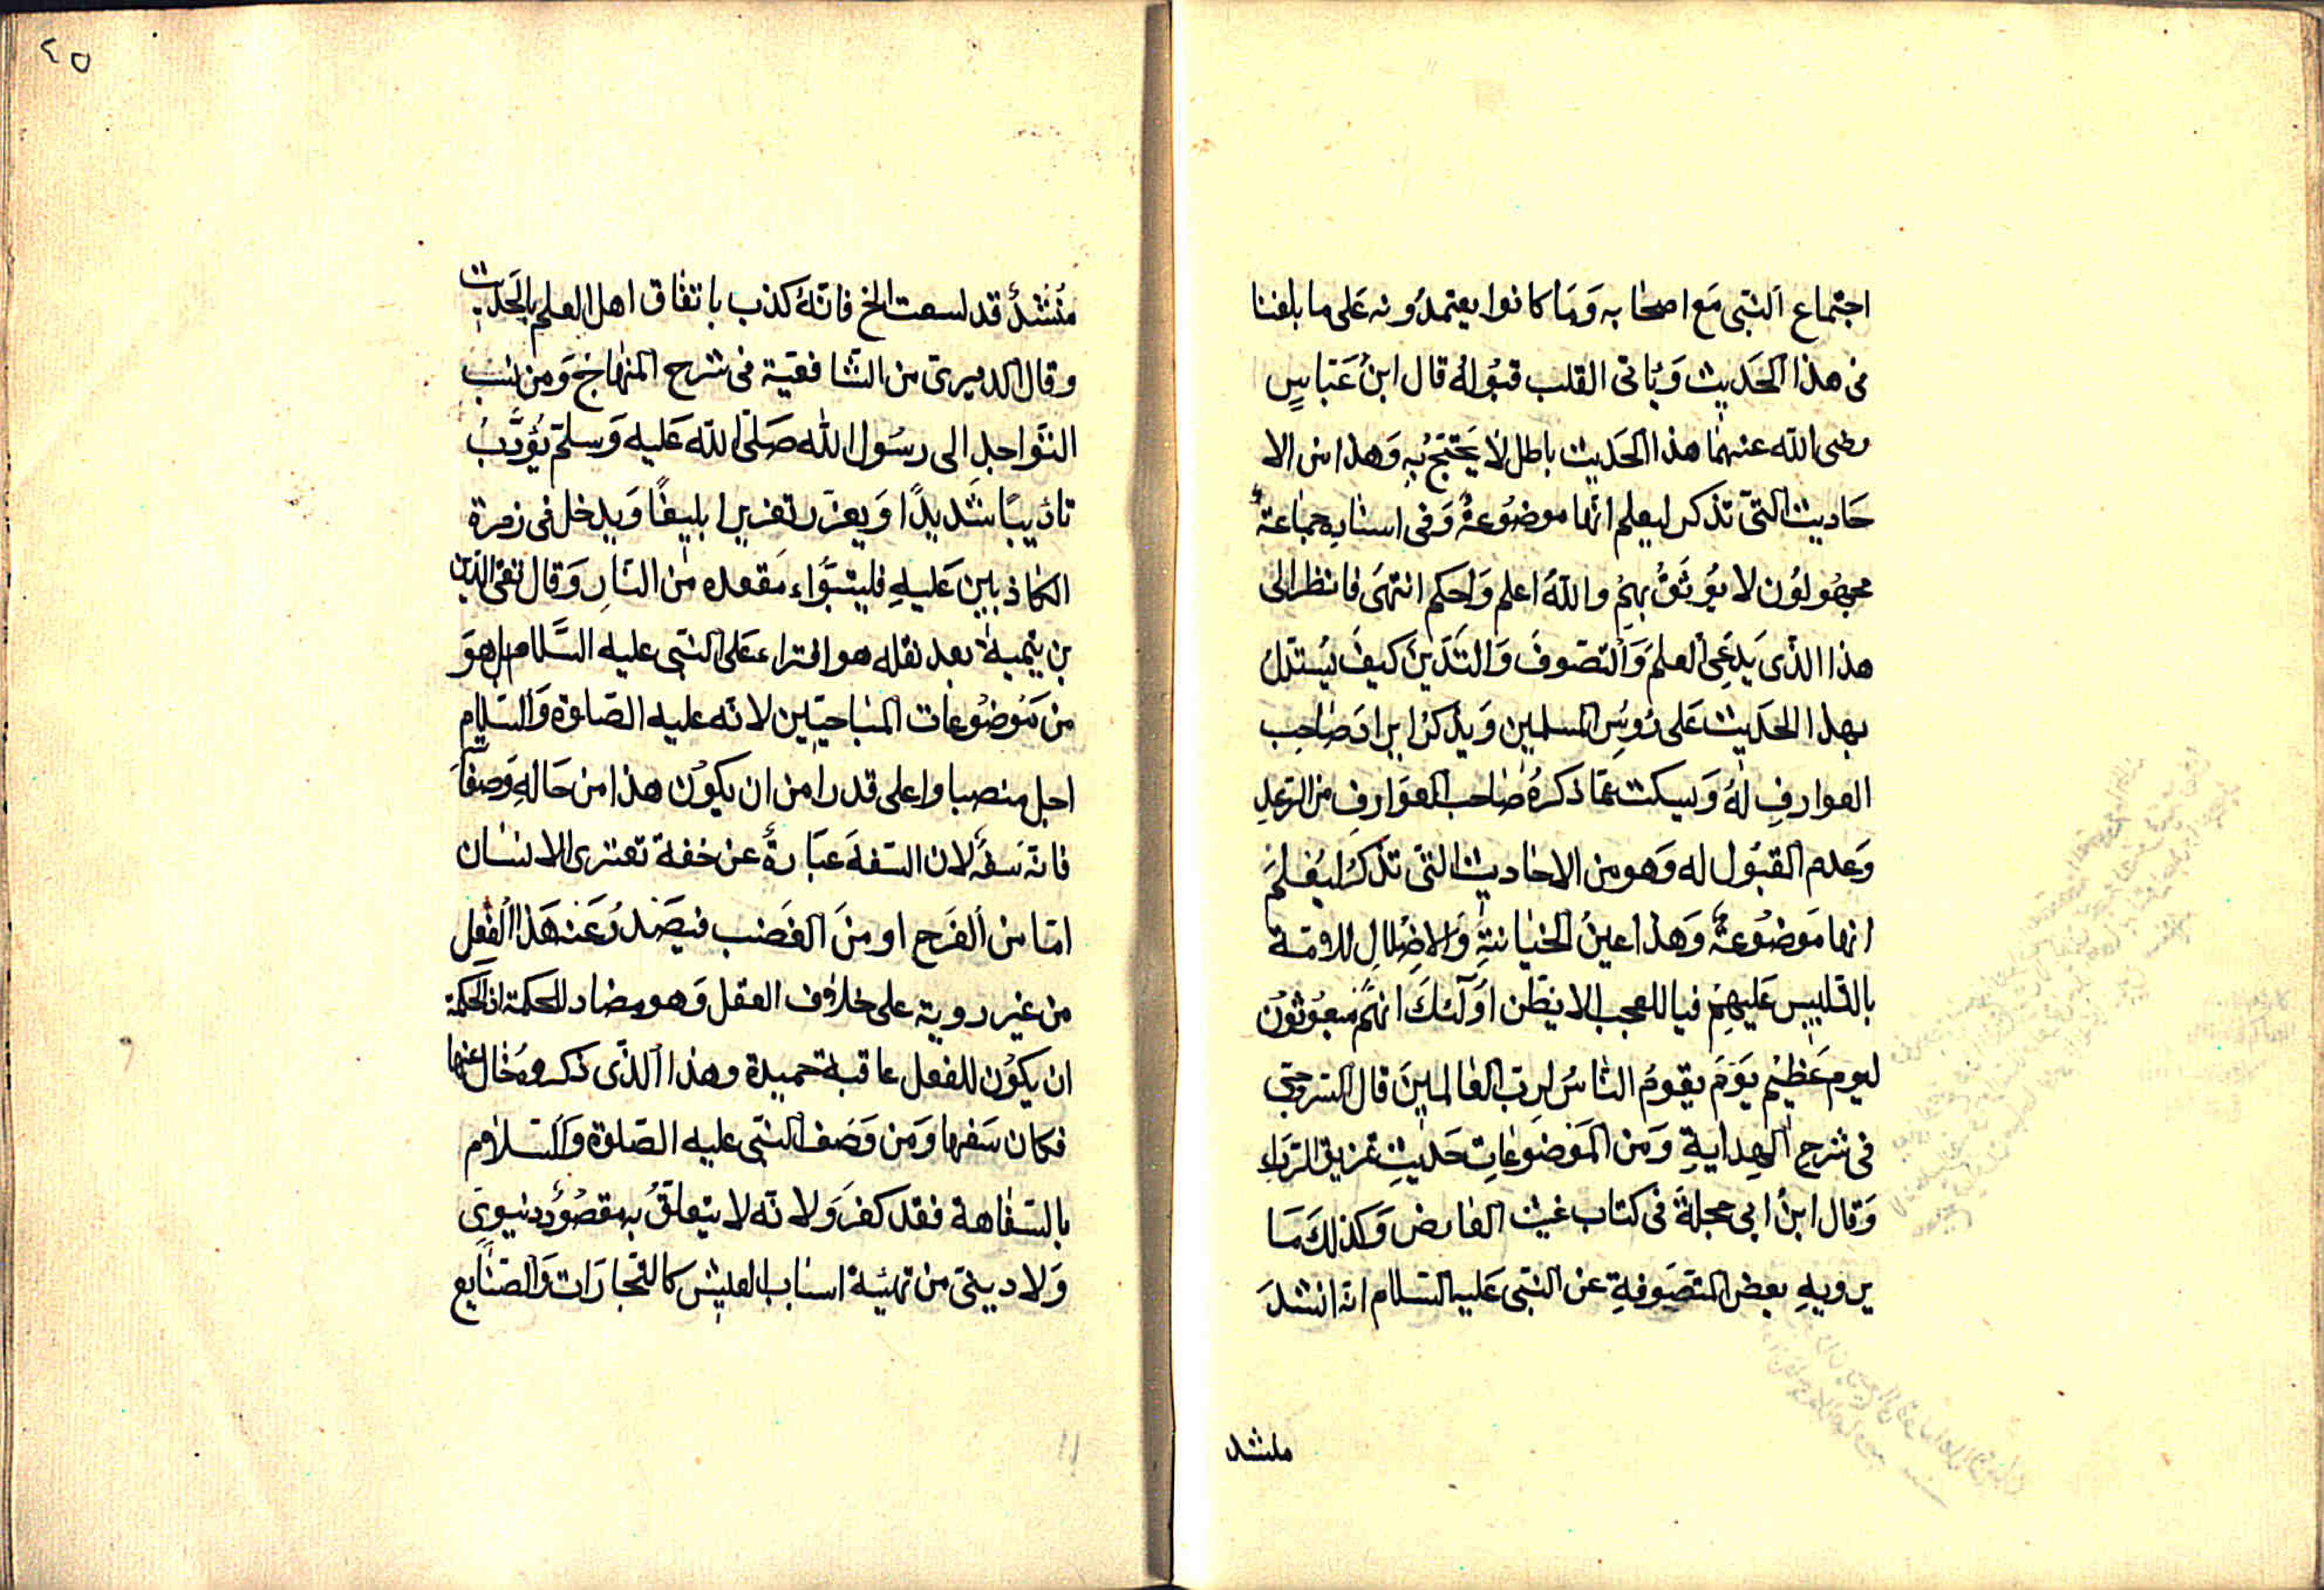 اجتماع النبى مع اصحابه وما كانوا يعتمدونه على ما بلغنا
فى هذا الحديث ويأبى القلب قبوله قال ابن عباس
رضى الله عنهما هذا الحديث باطل لا يحتج به وهذا من الا
حاديث التى تذكر ليعلم انها موضوعة وفى اسنابه جماعة
مجهولون لا يوثق بهم والله اعلم واحكم انتهى فانظر الى
هذا الذى يدعى العلم والتصوف والتدين كيف يستدل
بهذا الحديث على رؤس المسلمين ويذكر ايراد صاحب
العوارف له ويسكت عما ذكره صاحب العوارف من الرد عليه
وعدم القبول له وهو من الاحاديث التى تذكر ليعلم
انها موضوعة وهذا عين الخيانة والاضلال للامة
بالتلبيس عليهم فيا للعجب الا يظن اولئك انهم مبعوثون
ليوم عظيم يوم يقوم الناس لرب العالمين قال السروجى
فى شرح الهداية ومن الموضوعات حديث تمزيق الرداء
وقال ابن ابى حجلة فى كتاب غيث العارض وكذلك ما
يرويه بعض المتصوفة عن النبى عليه السلام انه انشد
منشد
٤٥
منشد قد لسعت الخ فانه كذب باتفاق اهل العلم بالحديث
وقال الدميرى من الشافعية فى شرح المنهاج ومن نسب
التواجد الى رسول الله صلى الله عليه وسلم يؤدب
تاديبا شديدا ويعزر تعزيرا بليغا ويدخل فى زمرة
الكاذبين عليه فليتبواء مقعده من النار وقال تقى الدين
بن تيمية بعد نقله هو افتراء على النبى عليه السلام بل هو
من موضوعات المباحيين لانه عليه الصلوة والسلام
اجل منصبا واعلى قدرا من ان يكون هذا من حاله وصفا
فانه سفه لان السفه عبارة عن خفة تعترى الانسان
اما من الفرح او من الغضب فيصدر عنه هذا الفعل
من غير روية على خلاف العقل وهو مضاد للحكمة اذ الحكمة
ان يكون للفعل عاقبة حميدة وهذا الذى ذكر وخال عنها
فكان سفها ومن وصف النبى عليه الصلوة والسلام
بالسفاهة فقد كفر ولانه لا يتعلق به مقصود دنيوى
ولا دينى من تهيئة اسباب العيش كالتجارات والصنايع